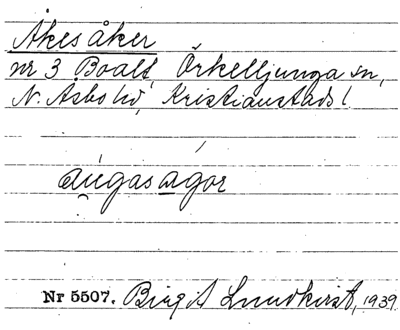 Åkesåker
nr 3 Boalt, Örkelljunga sn,
N. Åsbo hd, Kristianstads l
Nr 5507. Birgit Lundkvist, 1939